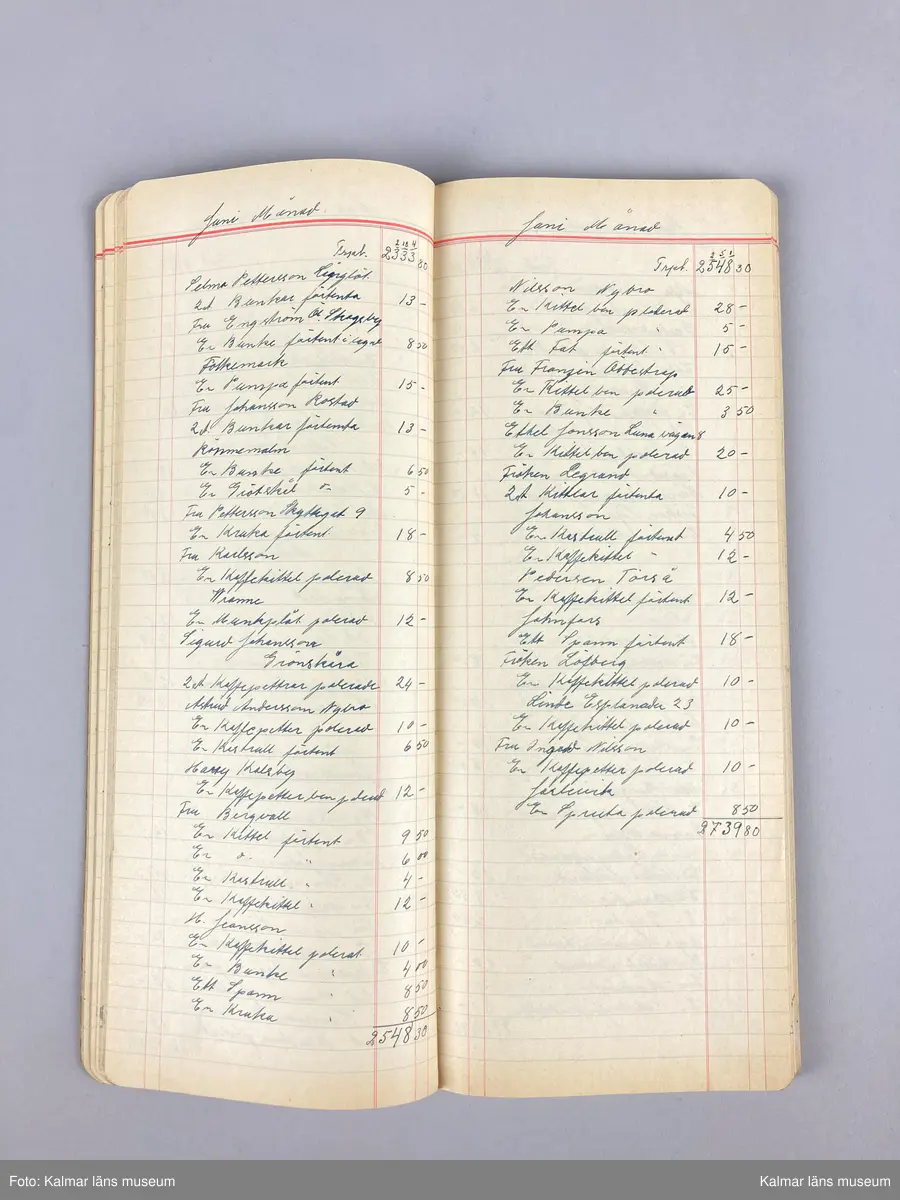 Juni Månad.
Trsp. 2333 80
Selma Pettersson
2st Bunkar förtenta 13 -
Fru Engström St. Skogsby
En Bunke förtent i lagat 8 50
Folkemark
En Pumpa förtent 15 -
Fru Johansson Rostad
2st. Bunkar förtenta 13 -
Rönnemalm
En Bunke förtent 6 50
En Grötskål o- 5 -
Fru Pettersson 9
En Kruka förtent 18 -
Fru Karlsson
En Kaffekittel polerad 8 50
Wranne
En Munkplåt polerad 12 -
Sigurd Johansson
Grönskåra
2st Kaffepettrar polerade 24 -
Astrid Andersson Nybro
En Kaffepetter polerad 10 -
En Kastrull förtent 6 50
Harry Kalsby
En Kaffepetter, ben polerad 12 -
Fru Bergvall
En Kittel förtent 9 50
En o. " 6 00
En Kastrull " 4 -
En Kaffekittel " 12 -
H. Jeansson
En Kaffekittel polerat 10 -
En Bunke " 4 00
Ett Spann " 8 50
En Kruka " 8 50
2548 30
Juni Månad
Trsp. 2548 30
Nilsson Nybro
En Kittel ben polerad 28 -
En Pumpa " 5 -
Ett Fat förtent " 15 -
Fru Franzén Åbbestorp
En Kittel ben polerad 25 -
En Bunke " 3 50
Ethel Jonsson Lunavägen 8
En Kittel ben polerad 20 -
Fröken Legrand
2st Kittlar förtenta 10 -
Johansson
En Kastrull förtent 4 50
En Kaffekittel " 12 -
Pedersen Torså
En Kaffekittel förtent 12 -
Johnfors
Ett Spann förtent 18 -
Fröken Löfberg
En Kaffekittel polerad 10 -
Linde Esplanaden 23
En Kaffekittel polerad 10 -
Fru Ingrid Nilsson
En Kaffepetter polerad 10 -
En Spruta polerad 8 50
2739 80
Foto: Kalmar läns museum
Kalmar läns museum